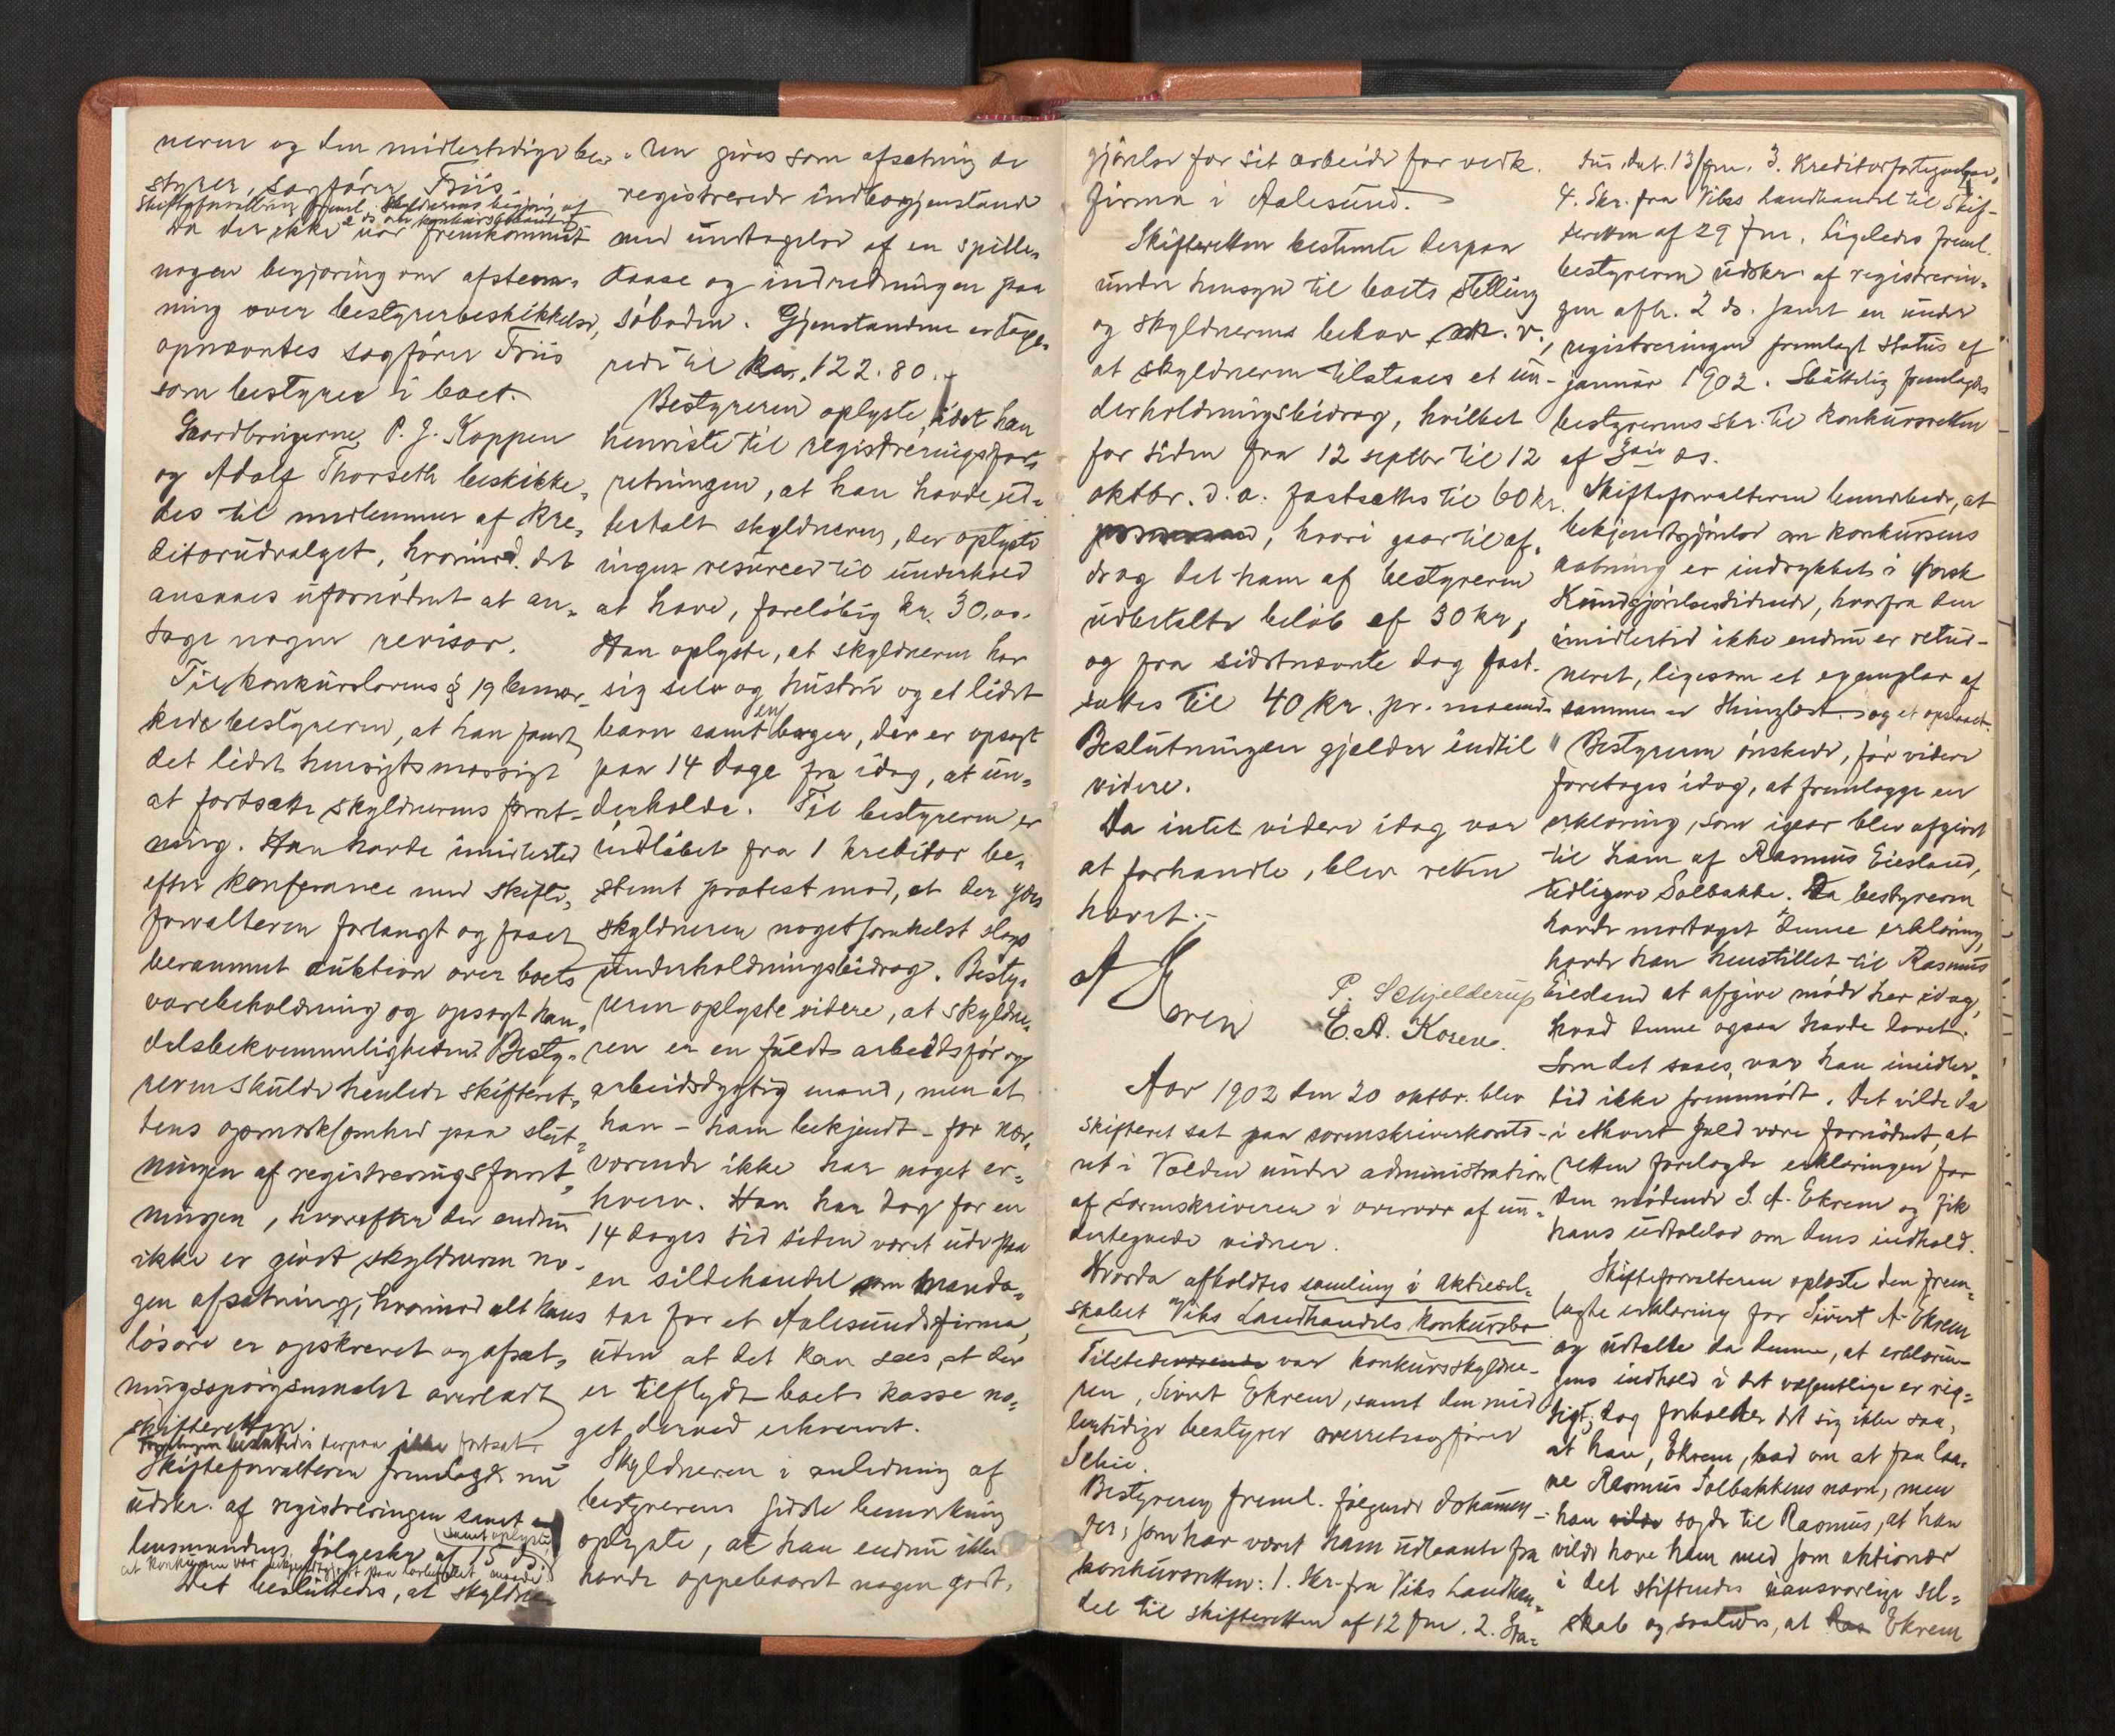 neren og den midlertidige be-
styrer, sagfører Friis.
Skifteforvalteren freml. skyldnerens begjæring af
2 ds. om konkursbehandl.
Da der ikke var fremkommet
nogen begjæring om afstem-
ning over bestyrerbeskikkelse,
opnævntes sagfører Friis
som bestyrer i boet.
Gaardbrugerne P. J. Koppen
og Adolf Thorseth beskikke-
des til medlemmer af kre-
ditorudvalget, hvorimod det
ansaaes ufornødent at an-
tage nogen revisor.
Til konkurslovens § 19 bemær-
kede bestyreren, at han fandt
det lidet hensigtsmæssigt
at fortsætte skyldnerens forret-
ning. Han havde imidlertid
efter konferance med skifte-
forvalteren forlangt og faaet
berammet auktion over boets
varebeholdning og opsagt han-
delsbekvemmeligheden. Besty-
reren skulde henlede skifteret-
tens opmerksomhed paa slut-
ningen af registreringsforret-
ningen, hvorefter der endnu
ikke er givet skyldneren no-
gen afsætning, hvorimod alt hans
løsøre er opskrevet og afsæt-
ningsspørgsmaalet overladt
skifteretten.
besluttedes derpaa ikke fortsat.
Skifteforvalteren fremlagde nu
udskr. af registreringen samt
lensmandens følgeskr. af 15 ds.
samt oplyste
at konkursen var bekjendtgjort paa lovbefalet maade.
Det besluttedes, at skyldne-
ren gives som afsætning de
registrerede indbogjenstande
med undtagelse af en spille-
daase og indredningen paa
søboden. Gjenstandene er taxe-
rede til kr. 122.80.
Bestyreren oplyste, idet han
henviste til registreringsfor-
retningen, at han havde ud-
betalt skyldneren, der oplyste
ingen resurcer til underhold
at have, foreløbig kr. 30,00.
Han oplyste, at skyldneren har
sig selv og hustru og et lidet
barn samt en bager, der er opsagt
paa 14 dage fra idag, at un-
derholde. Til bestyreren er
indløbet fra 1 kreditor be-
stemt protest mod, at der ydes
skyldneren nogetsomhelst slags
underholdningsbidrag. Besty-
reren oplyste videre, at skyldne-
ren er en fuldt arbeidsfør og
arbeidsdygtig mand, men at
han – ham bekjendt – for nær-
værende ikke har noget er-
hverv. Han har dog for en
14 dages tid siden været ude paa
en sildehandel som manda-
tar for et Aalesundsfirma,
uden at det kan sees, at der
er tilflydt boets kasse no-
get derved erhvervet.
Skyldneren i anledning af
bestyrerens sidste bemerkning
oplyste, at han endnu ikke
havde oppebaaret nogen godt-
gjørelse for sit arbeide for vedk.
firma i Aalesund.
Skifteretten bestemte derpaa
under hensyn til boets stilling
og skyldnerens behov m. v.,
at skyldneren tilstaaes et un-
derholdningsbidrag, hvilket
for tiden fra 12 septbr til 12
oktbr. d. a. fastsættes til 60 kr.
, hvori gaar til af-
drag det ham af bestyreren
udbetalte beløb af 30 kr,
og fra sidstnævnte dag fast-
sættes til 40 kr. pr. maaned.
Beslutningen gjelder indtil
videre.
Da intet videre idag var
at forhandle, blev retten
hævet.–
A Koren
P. Schjelderup
E. A. Koren.
Aar 1902 den 20 oktbr. blev
skifteret sat paa sorenskriverkonto-
ret i Volden under administration
af sorenskriveren i overvær af un-
dertegnede vidner.
Hvorda afholdtes samling i Aktiesel-
skabet "Viks Landhandels konkursbo
Tilstedeværende var konkursskyldne-
ren, Sivert Ekrem, samt den mid-
lertidige bestyrer overretssagfører
Schie.
Bestyreren freml. følgende dokumen-
ter, som har været ham udlaante fra
konkursretten: 1. Skr. fra Viks Landhan-
del til skifteretten af 12 fm. 2. Sta-
tus dat. 13/ fm. 3. Kreditorfortegnelse,
4. Skr. fra Viks Landhandel til Skif-
teretten af 29 fm. Ligeledes freml.
bestyreren udskr. af registrerin-
gen afh. 2 ds. samt en under
registreringen fremlagt status af
januar 1902. Skriftelig fremlagdes
bestyrerens skr. til konkursretten
af ds.
Skifteforvalteren bemærkede, at
bekjendtgjørelse om konkursens
aabning er indrykket i Norsk
Kundgjørelsestidende, hvorfra den
imidlertid ikke endnu er retur-
neret, ligesom et exemplar af
samme er thinglæst og et opslaaet.
Bestyreren ønskede, før videre
foretages idag, at fremlægge en
erklæring, som igaar blev afgivet
til ham af Rasmus Eiesland,
tidligere Solbakke. Da bestyreren
havde modtaget denne erklæring,
havde han henstillet til Rasmus
Eiesland at afgive møde her idag,
hvad denne ogsaa havde lovet.
Som det saaes, var han imidler-
tid ikke fremmødt. Det vilde da
i ethvert fald være fornødent, at
retten forelagde erklæringen for
den mødende S. A. Ekrem og fik
hans udtalelse om dens indhold.
Skifteforvalteren oplæste den frem-
lagte erklæring for Sivert A. Ekrem
og udtalte da denne, at erklærin-
gens indhold i det væsentlige er rig-
tigt; dog forholder det sig ikke saa,
at han, Ekrem, bad om at faa laa-
ne Rasmus Solbakkens navn, men
han vilde sagde til Rasmus, at han
vilde have ham med som aktionær
i det stiftende uansvarlige sel-
skab og saaledes, at Ras Ekrem